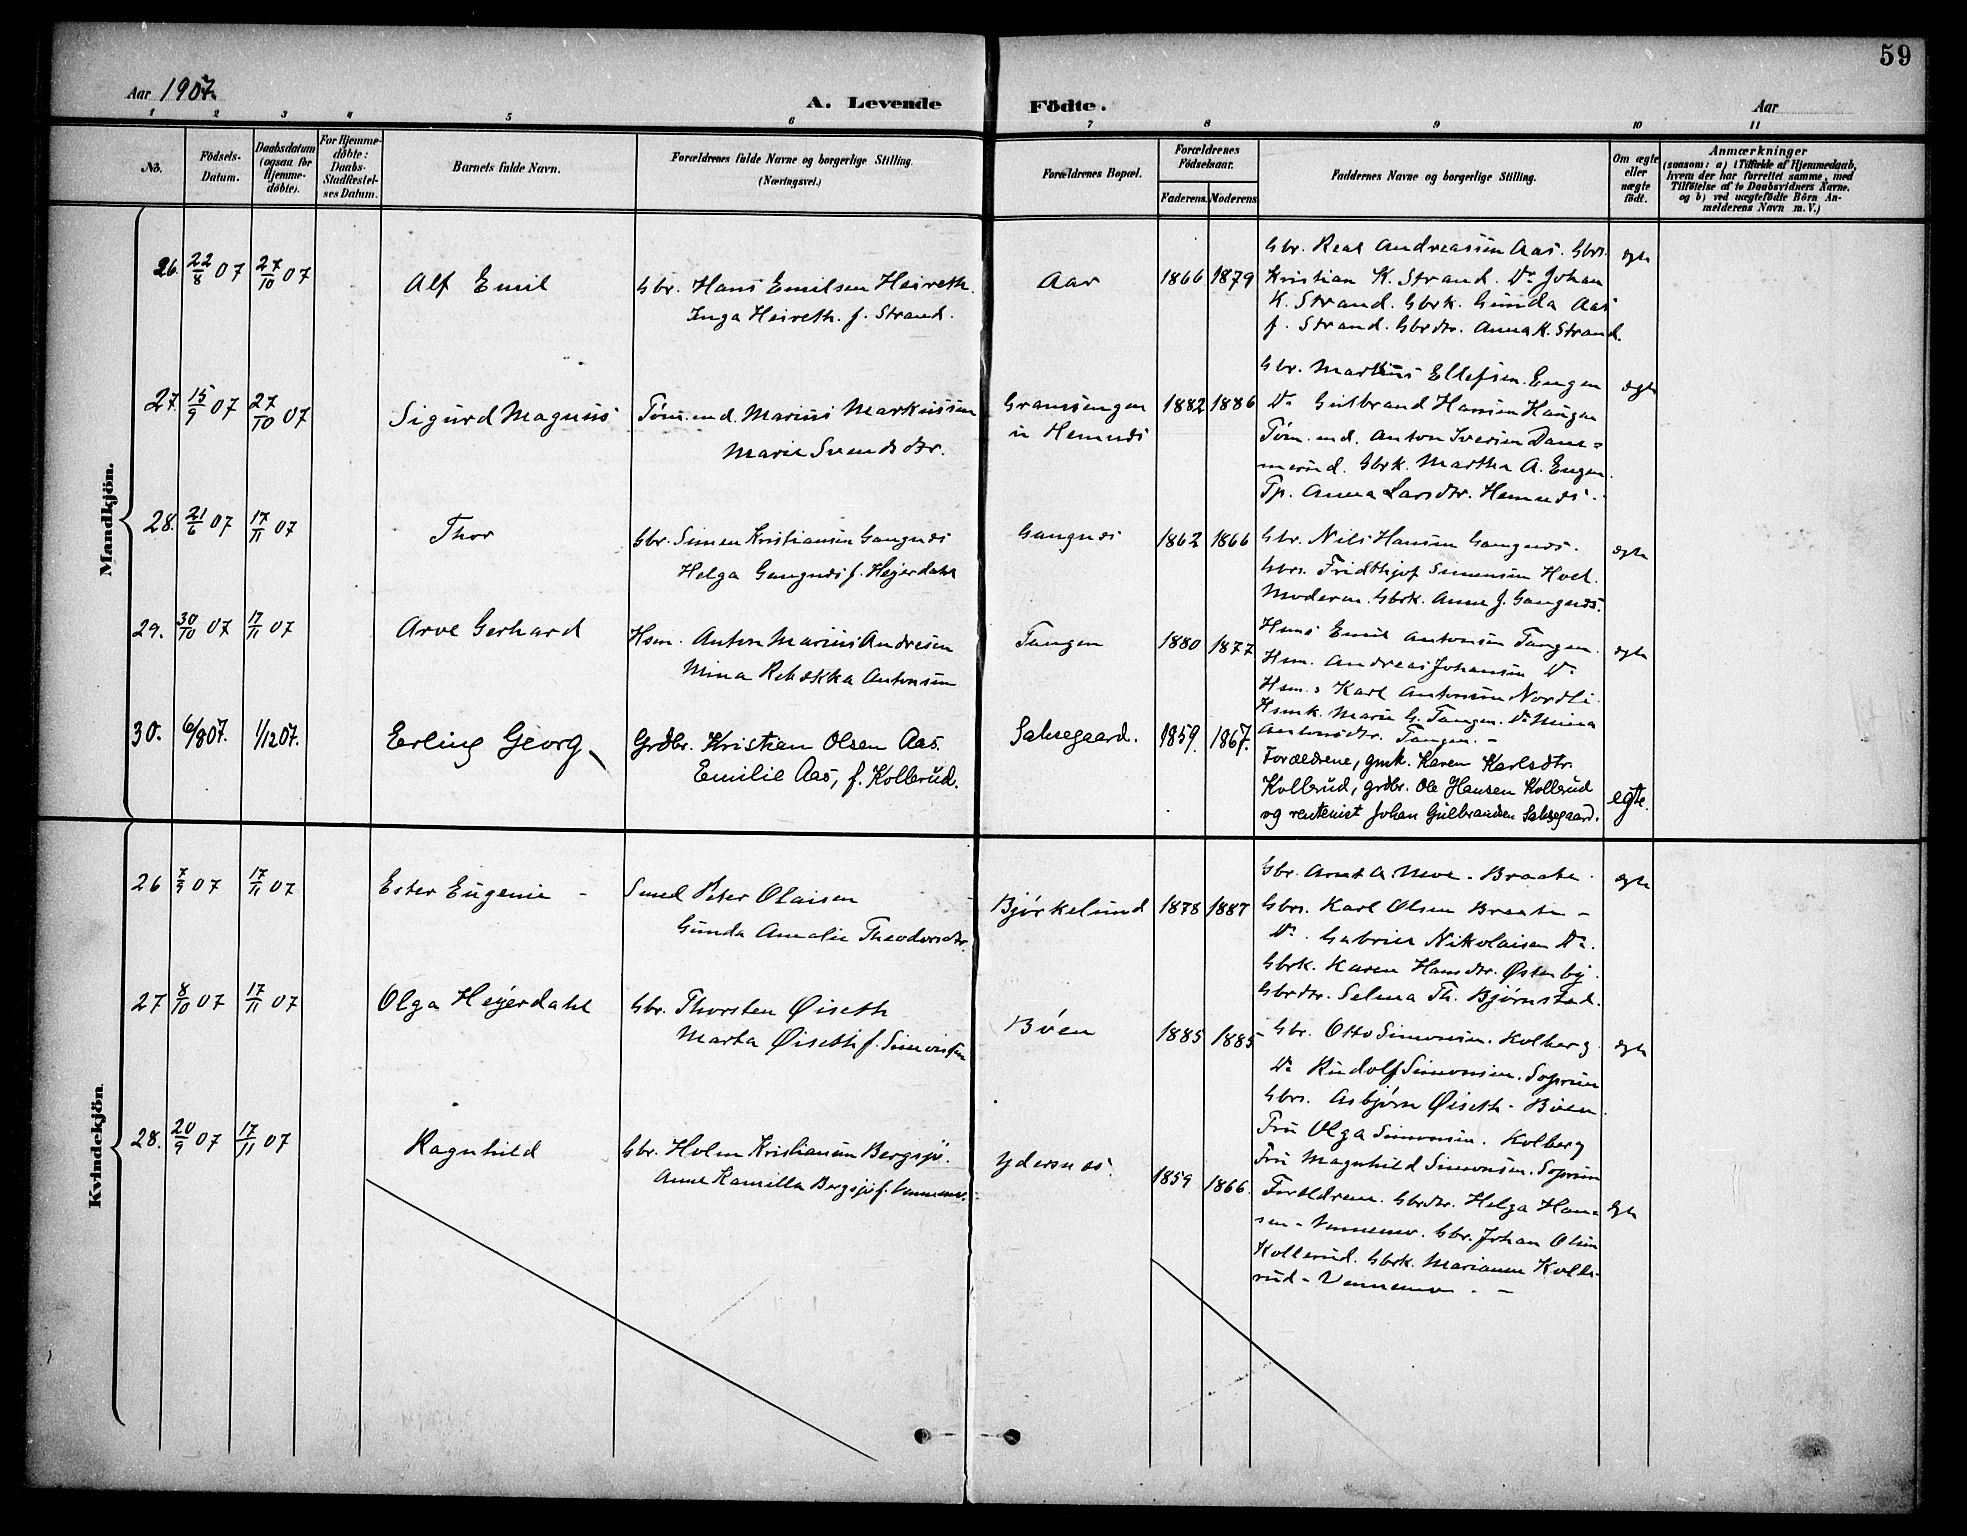 59
Aar 1907.
A. Levende Födte.
Aar
1 2 3 4 5 6 7 8 9 10 11
No.
Födsels-Datum.
Daabsdatum (ogsaa for Hjemme-döbte).
For Hjemme-döbte: Daabs-Stadfæstel-ses Datum.
Barnets fulde Navn.
Forældrenes fulde Navne og borgerlige Stilling.
(Næringsvei.)
Forældrenes Bopæl.
Forældrenes Födselsaar.
Faderens. Moderens
Faddernes Navne og borgerlige Stilling.
Om ægte eller uægte födt.
Anmærkninger
(saasom: a) i Tilfælde af Hjemmedaab,
hvem der har forrettet samme, med
Tilföielse af to Daabsvidners Navne.
og b) ved uægtefödte Börn An-
melderens Navn m. V.)
Mandkjön.
26. 22/8 07 27/10 07
Alf Emil
Gbr. Hans Emilsen Heireth.
Inga Heireth. f. Strand.
Aar
1866 1879
Gbr. Andreassen Aas. Gbrs.
Kristian K. Strand. Do Johan
K. Strand. Gbrk. Gunda Aas
f. Strand. Gbrdtr. Anna K. Strand.
egte
27. 15/9 07 27/10 07
Sigurd Magnus
Töm.md. Marius Markussen
Marie Svendsdtr.
u Hemnes
1882 1886
Gbr. Markus Ellefsen. Engen
Do Gulbrand Hansen Haugen
Töm. md. Anton Iversen Dam=
merud. Gbrk. Martha A. Engen.
Tp. Anna Larsdtr. Hemnes.
egte
28. 21/6 07 17/11 07
Thor
Gbr. Simen Kristiansen Gangnæs
Helga Gangnæs f. Heyerdahl
Gangnes
1862 1866
Gbr. Nils Hansen Gangnæs.
Gbrs. Fridthjof Simensen Hoel.
Moderen. Gbrk. Anne J. Gangnæs.
egte
29. 30/10 07 17/11 07
Arve Gerhard
Hsm. Anton Marius Andresen
Mina Rebekka Antonsen
Tangen
1880 1877
Hsms Emil Antonsen Tangen.
Hsm. Andreas Johansen Do
Hsm.s Karl Antonsen Nordli.
Hsmk. Marie G. Tangen. Do Mina
Antonsdtr. Tangen. -
egte
30. 6/8 07. 1/12 07.
Erling Georg
Grdbr. Kristian Olsen Aas.
Emilie Aas, f. Kollerud.
Saksegaard.
1859. 1867.
Forældrene, gmk. Karen Karlsdtr.
Kollerud, grdbr. Ole Hansen Kollerud
og rentenist Johan Gulbrandsen Saksegaard.
egte.
Kvindekjön
26 7/9 07 17/11 07
Ester Eugenie -
Smed Peter Olaisen
Gunda Amalie Theodorsdtr.
Björkelund
1878 1887
Gbr. Arnt A. Moe - Braate.
Gbrs. Karl Olsen Braate -
Do. Gabriel Nikolaisen Do.
Gbrk. Karen Hansdtr. Østenby.
Gbrdtr. Selma Th. Bjørnstad.
egte
27 8/10 07 17/11 07
Olga Heyerdahl
Gbr. Thorsten Øiseth
Marta Øiseth f. Simonsen
Bøen
1885 1885
Gbr. Otto Simonsen. Kolberg
Do Rudolf Simonsen. Soprim
Gbrs. Asbjørn Øiseth - Bøen.
Fru Olga Simonsen. Kolberg
Fru Magnhild Simonsen. Soprim
egte
28. 20/9 07 17/11 07
Ragnhild
Gbr. Holm Kristiansen Bergsjö.
Anne Kamilla Bergsjö f. Vennemo.
Ydersnes.
1859 1866.
Forældrene. Gbrdtr. Helga Han=
sen - Vennemo. Gbr. Johan Olsen
Kollerud. Gbrk. Marianne Kolle-
rud - Vennemo. -
egte